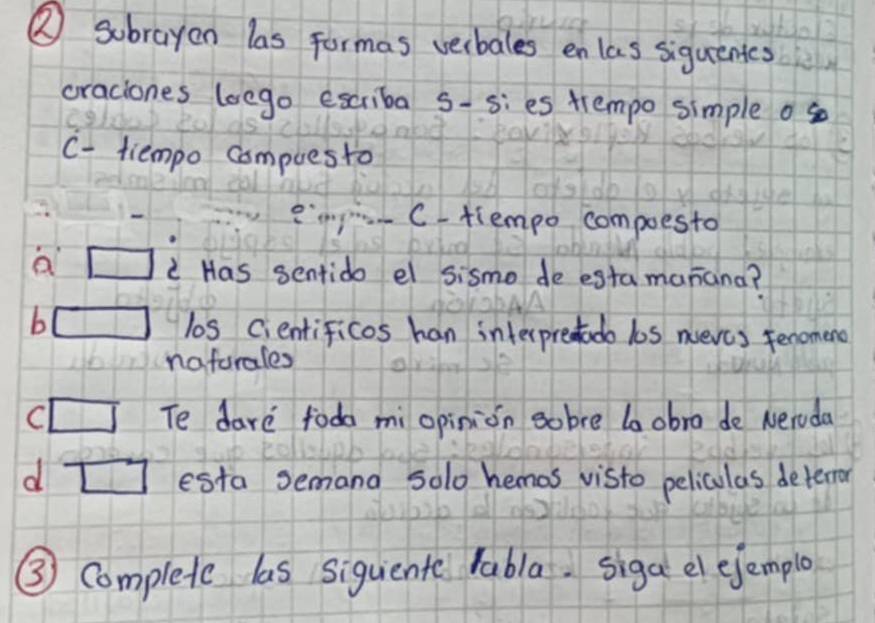 ② subrayen las formas verbales en las siguientes
oraciones luego escriba s- si es tiempo simple o
c- tiempo compuesto
C - tiempo compuesto
a ¿ Has sentido el sismo de esta mañana?
b los cientificos han interpretado los nuevos fenomeno
naturales
c Te daré toda mi opinión sobre la obra de Neruda
d esta semana solo hemos visto peliculas de terror
③ Complete las siguiente tabla. Siga el ejemplo